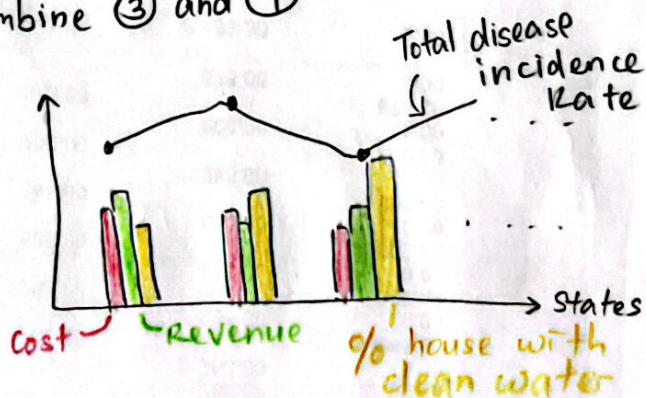 mbine ③ and ①
Total disease
incidence
Rate
States
Cost
Revenue
% house with
clean water